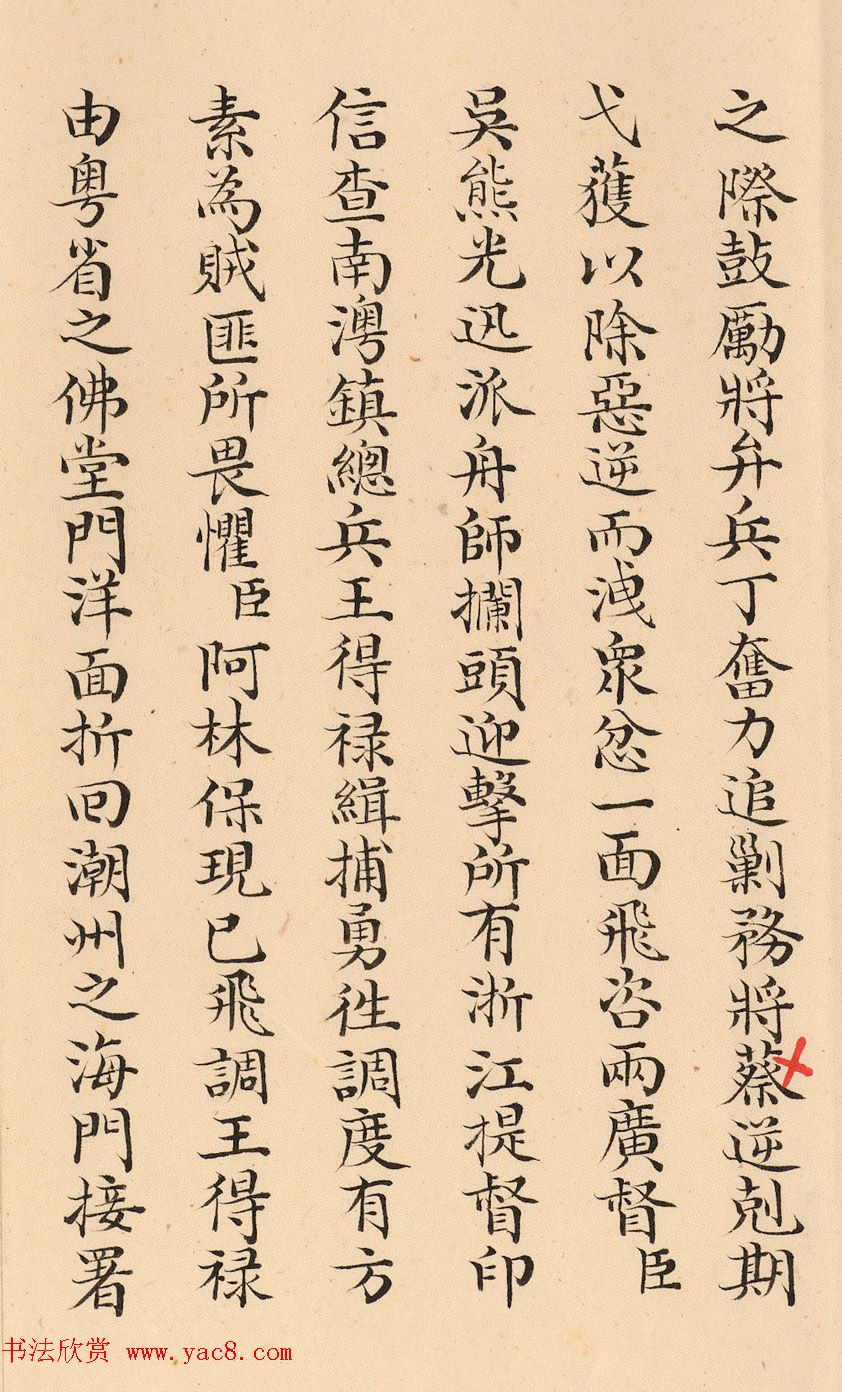 之際鼓勵將弁兵丁奮力追剿務將蔡逆剋期
弋獲以除惡逆而洩衆忿一面飛咨兩廣督臣
吳熊光迅派舟師攔頭迎擊所有浙江提督印
信查南澚鎮總兵王得禄緝捕勇徃調度有方
素為賊匪所畏懼臣阿林保現已飛調王得禄
由粤省之佛堂門洋面折回潮州之海門接署
书法欣赏 www.yac8.com